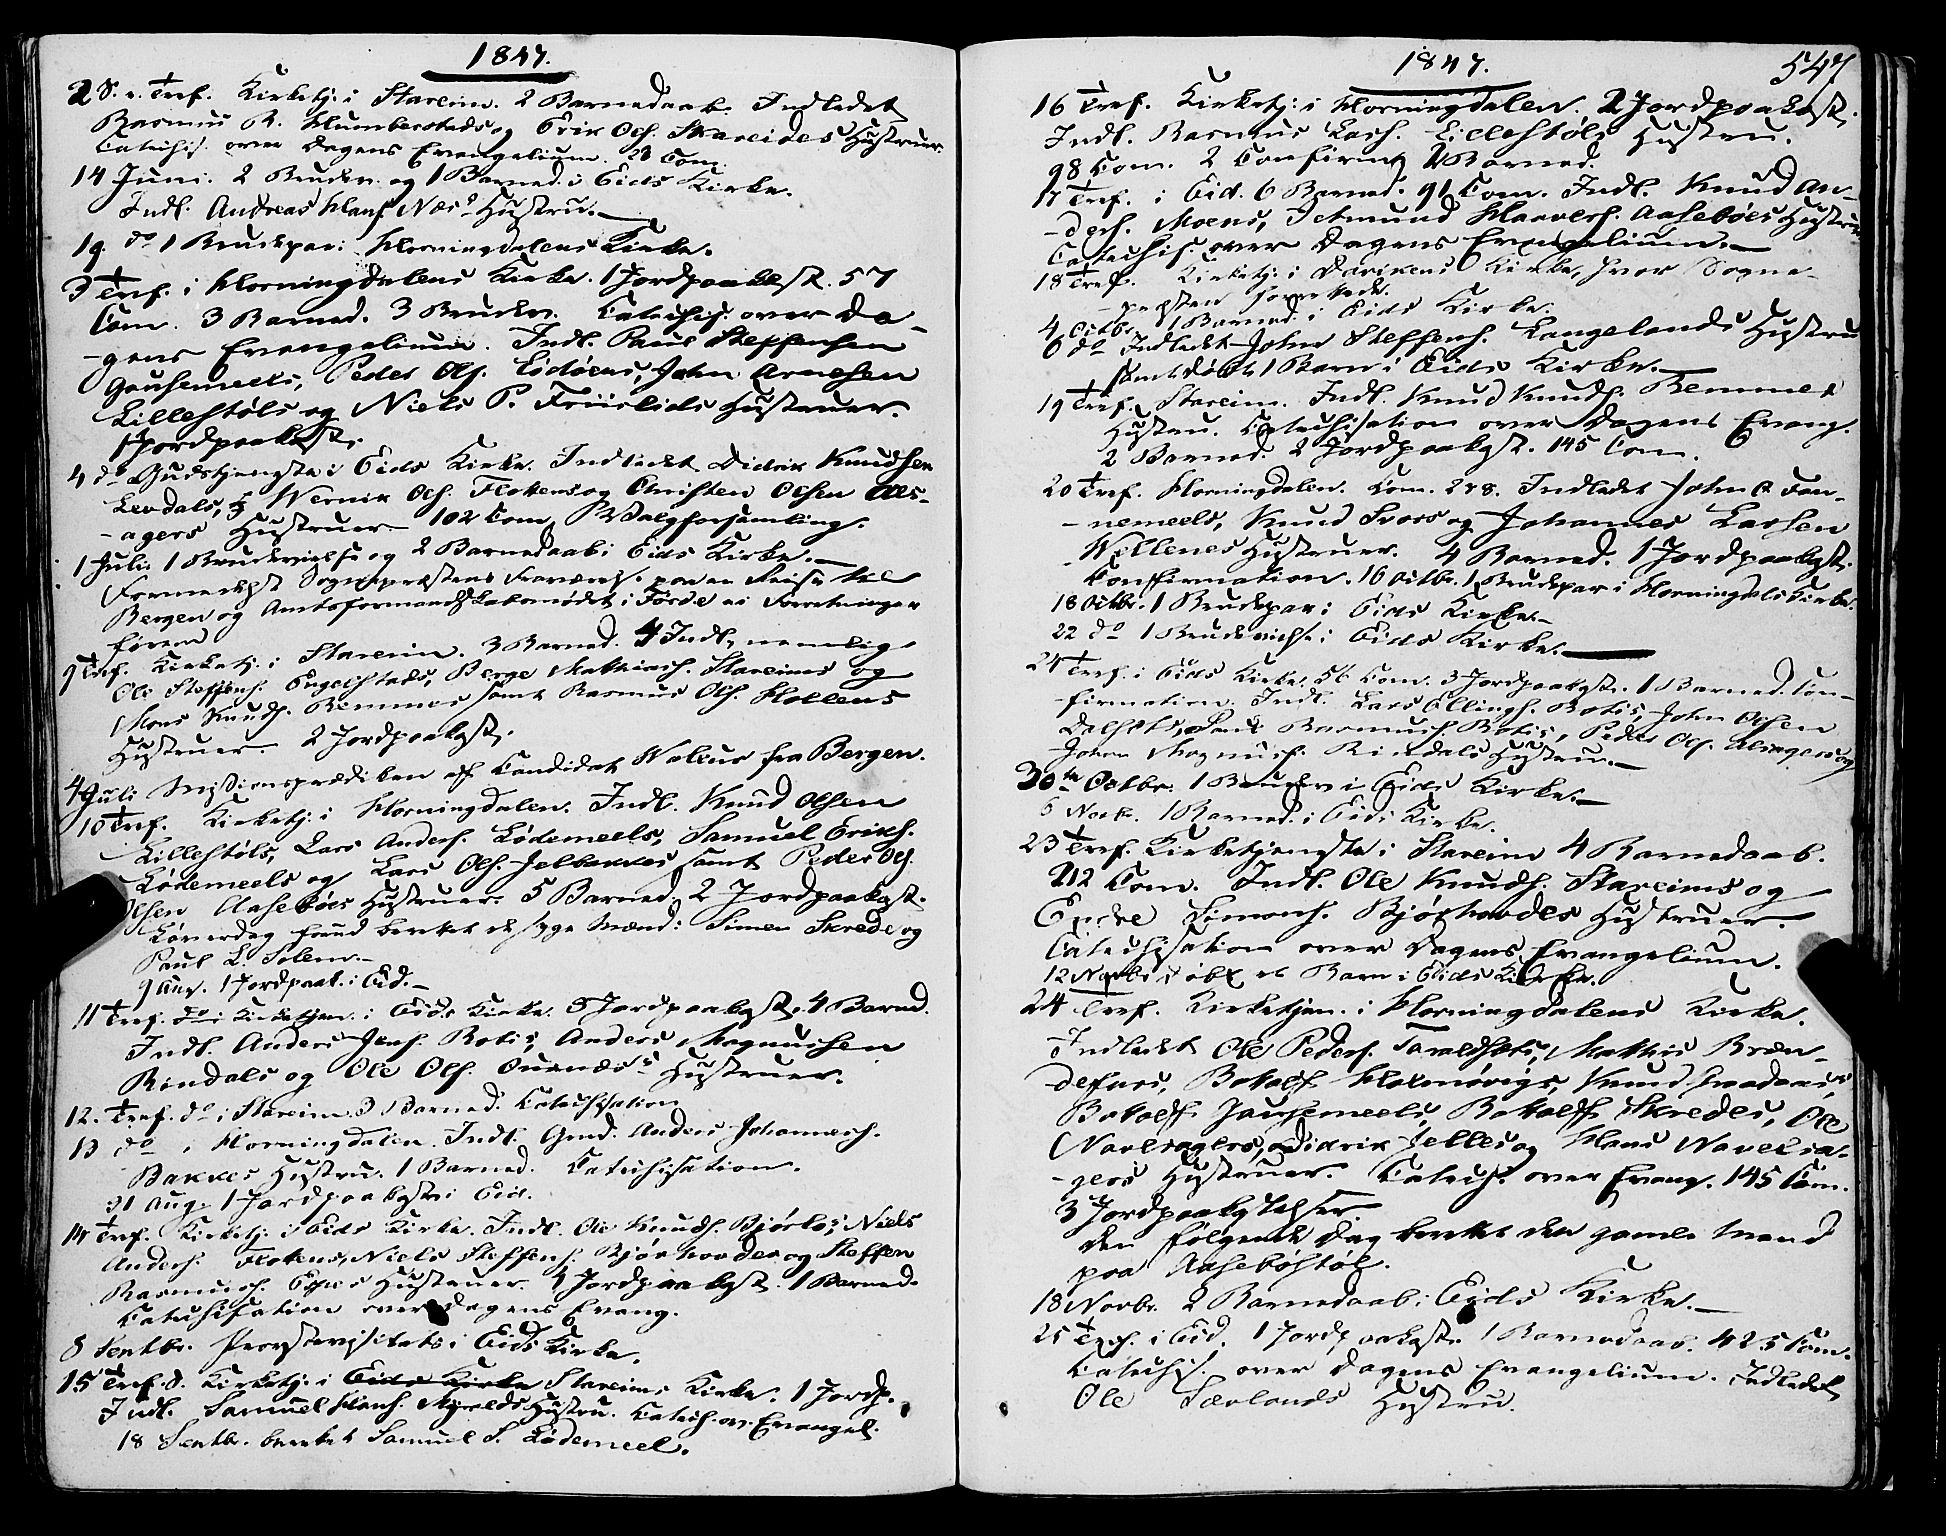 1847.
2 S. e. Tref. Kirketj. i Stareim. 2 Barnedaab. Indledet
Rasmus R. Humberstads og Erik Ols. Skareides Hustruer
Catechis. over Dagens Evangelium. 28 Com.
14 Juni. 2 Brudev. og 1 Barned. i Eids Kirke.
Indl. Andreas Hans. Næs's Hustru.
19 do 1 Brudepar i Horningdalens Kirke.
3 Tref. i Horningdalens Kirke. 1 Jordpaakast. 57
Com. 3 Barned. 3 Brudev. Catechis. over Da-
-gens Evangelium. Indl. Paul Steffensen
Gausemeels, Peder Ols. Lødøens, John Arnesen
Lillestøls og Niels P. Friislids Hustruer.
1 Jordpaakast.
4 do Gudstjenste i Eids Kirke. Indledet Didrik Knudsen
Levdals, Wernik Ols. Flotens og Christen Olsen Aas-
-agers Hustruer. 102 Com. Valgforsamling.
1 Juli 1 Brudevielse og 2 Barnedaab i Eids Kirke.
Formedelst Sognepræstens Fraværelse paa en Reise til
Bergen og Amtsformandskabsmødet i Førde ei Forretninger
førend
9 Tref. Kirketj. i Stareim. 3 Barned. 4 Indl. nemlig
Ole Steffens. Engelstads, Berge Matthias. Stareims og
Mons Knuds. Remmes samt Rasmus Ols. Hollens
Hustruer. 2 Jordpaakast.
4 Juli Missionsprædiken af Candidat Walnus fra Bergen.
10 Tref. Kirketj. i Horningdalen. Indl. Knud Olsen
Lillestøls, Lars Anders. Lødemeels, Samuel Eriks.
Lødemeels og Lars Ols. Jelbakkes samt Peder Ols.
Olsen Aasebøes Hustruer. 5 Barned. 2 Jordpaakast.
Løverdag forud beretet syge Mænd: Simen Skrede og
Paul L. Solem.
9 Aug. 1 Jordpaak. i Eid.
11 Tref. Kirketjen. i Eids Kirke. 8 Jordpaakast. 4 Barned.
Indl. Anders Jens. Rotis, Anders Magnussen
Rindals og Ole Ols. Ournæs's Hustruer.
12. Tref. do i Stareim. 3 Barned. Catechisation
13 do i Horningdalen. Indl. Gmd. Anders Johannes.
Bakkes Hustru. 1 Barned. Catechisation.
31 Aug. 1 Jordpaakast i Eid.
14 Tref. Kirketj. i Eids Kirke. Indl. Ole Knuds. Bjørlos, Niels
Anders. Flotens, Niels Steffens. Bjørhovdes og Steffen
Rasmus. Espes Hustruer. 4 Jordpaakast. 1 Barned.
Catechisation over Dagens Evang.
8 Septbr. Provstevisitats i Eids Kirke.
15 Tref. d. Kirketj. i Eids Kirke Stareims Kirke. 1 Jordp.
Indl. Samuel Hans. Myrolds Hustru. Catech. ov. Evangel.
18 Septbr. beretet Samuel S. Lødemeel.
1847.
547
16 Tref. Kirketj. i Horningdalen. 2 Jordpaakast.
Indl. Rasmus Lars. Lillestøls Hustru.
98 Com. 2 Confirm. 2 Barned.
17 Tref. i Eid. 6 Barned. 91 Com. Indl. Knud An-
-ders. Moens, Jetmund Haavers. Aasebøes Hustruer
Catechis. over Dagens Evangelium.
18 Tref. Kirketj. i Davikens Kirke, hvor Sogne-
-præsten forrettede.
4 Octbr. 1 Barned. i Eids Kirke.
6 do Indledet John Steffens. Langelands Hustru
samt døbt 1 Barn i Eids Kirke.
19 Tref. Stareim. Indl. Knud Knuds. Remmes
Hustru. Catechisation over Dagens Evang.
2 Barned. 2 Jordpaakast. 145 Com.
20 Tref. Horningdalen. Com. 248. Indledet John Fan-
-nemeels, Knud Svors og Johannes Larsen
Wellenes Hustruer. 4 Barned. 1 Jordpaakast.
Confirmation. 16 Octbr. 1 Brudepar i Horningdals Kirke.
18 Octbr. 1 Brudepar i Eids Kirke.
22 do 1 Brudevielse i Eids Kirke.
24 Tref. i Eids Kirke. 56 Com. 3 Jordpaakast. 1 Barned. Con-
-firmation. Indl. Lars Ellings. Rotis, John Olsen
Dalsets, Rasmus. Rotis, Peder Ols. og
Johan Magnus. Rindals Hustru.
30te Octbr. 1 Brudev. i Eids Kirke.
6 Novbr. 1 Barned. i Eids Kirke.
23 Tref. Kirketjenste i Stareim 4 Barnedaab.
212 Com. Indl. Ole Knuds. Stareims og
Endre Simons. Bjørhovdes Hustruer.
Catechisation over Dagens Evangelium.
12 Novbr. døbt et Barn i Eids Kirke.
24 Tref. Kirketjen. i Horningdalens Kirke.
Indledet Ole Peders. Taraldsets, Mathis Bræn-
-defurs, Botolf Holmøvigs, Knud
Botolf Gausemeels, Botolf Skredes, Ole
Navelsagers, Didrik Jelles og Hans Navelsa-
-gers Hustruer. Catech. over Evang. 145 Com.
3 Jordpaakastelser
den følgende Dag beretet den gamle Mand
paa Aasebøstøl.
18 Novbr. 2 Barnedaab i Eids Kirke.
25 Tref. i Eid. 1 Jordpaakast. 1 Barnedaab. 425 Com.
Catechis. over Dagens Evangelium. Indledet
Ole Sævlands Hustru.